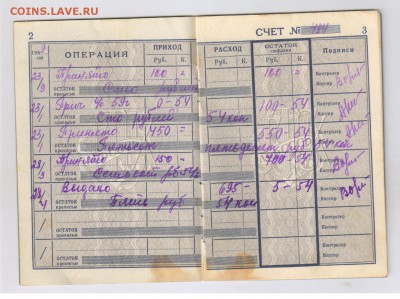 COINS.LAVE.RU
2
СЧЕТ № 3
ОПЕРАЦИЯ ПРИХОД РАСХОД ОСТАТОК Подписи
Руб. К. Руб. К. Руб. К.
23/3 Принято 100 = 100 = Контролер
ОСТАТОК прописью Сто рублей Кассир
0-54 100-54 Контролер
ОСТАТОК прописью Сто рублей 54 коп Кассир
Принято 450 = 550-54 Контролер
ОСТАТОК прописью Пятьсот пятьдесят руб 54 коп Кассир
Принято 150 - 700-54 Контролер
ОСТАТОК прописью Семьсот руб 54 Кассир
Выдано 695- 5-54 Контролер
ОСТАТОК прописью Пять руб 54 коп Кассир
Контролер
ОСТАТОК прописью Кассир
Контролер
ОСТАТОК прописью Кассир